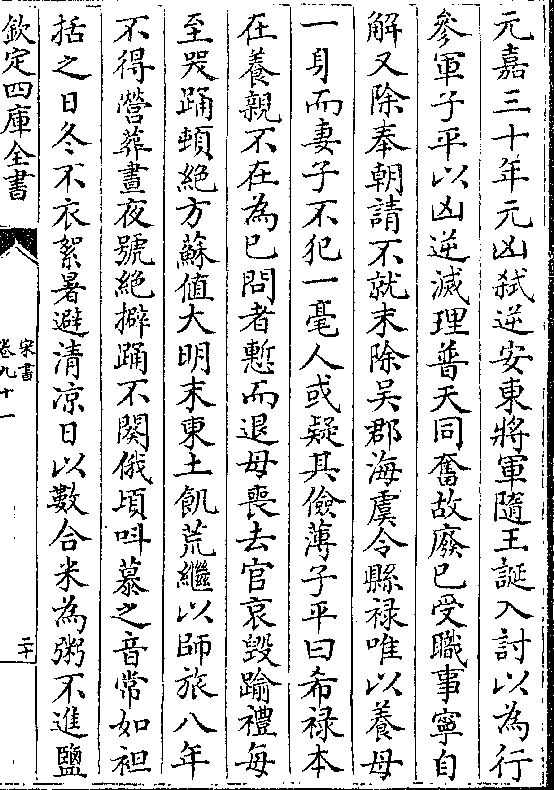 元嘉三十年元凶弑逆安東將軍隨王誕入討以為行
參軍子平以凶逆滅理普天同奮故廢已受職事寧自
解又除奉朝請不就末除吳郡海虞令縣祿唯以養母
一身而妻子不犯一毫人或疑其儉薄子平曰希祿本
在養親不在為已問者慙而退母喪去官哀毀踰禮每
至哭踊頓絕方蘇值大明末東土飢荒繼以師旅八年
不得營葬晝夜號絕擗踊不闋俄頃呌慕之音常如袒
括之日冬不衣絮暑避清凉日以數合米為粥不進鹽
欽定四庫全書
宋書
卷九十一
二十